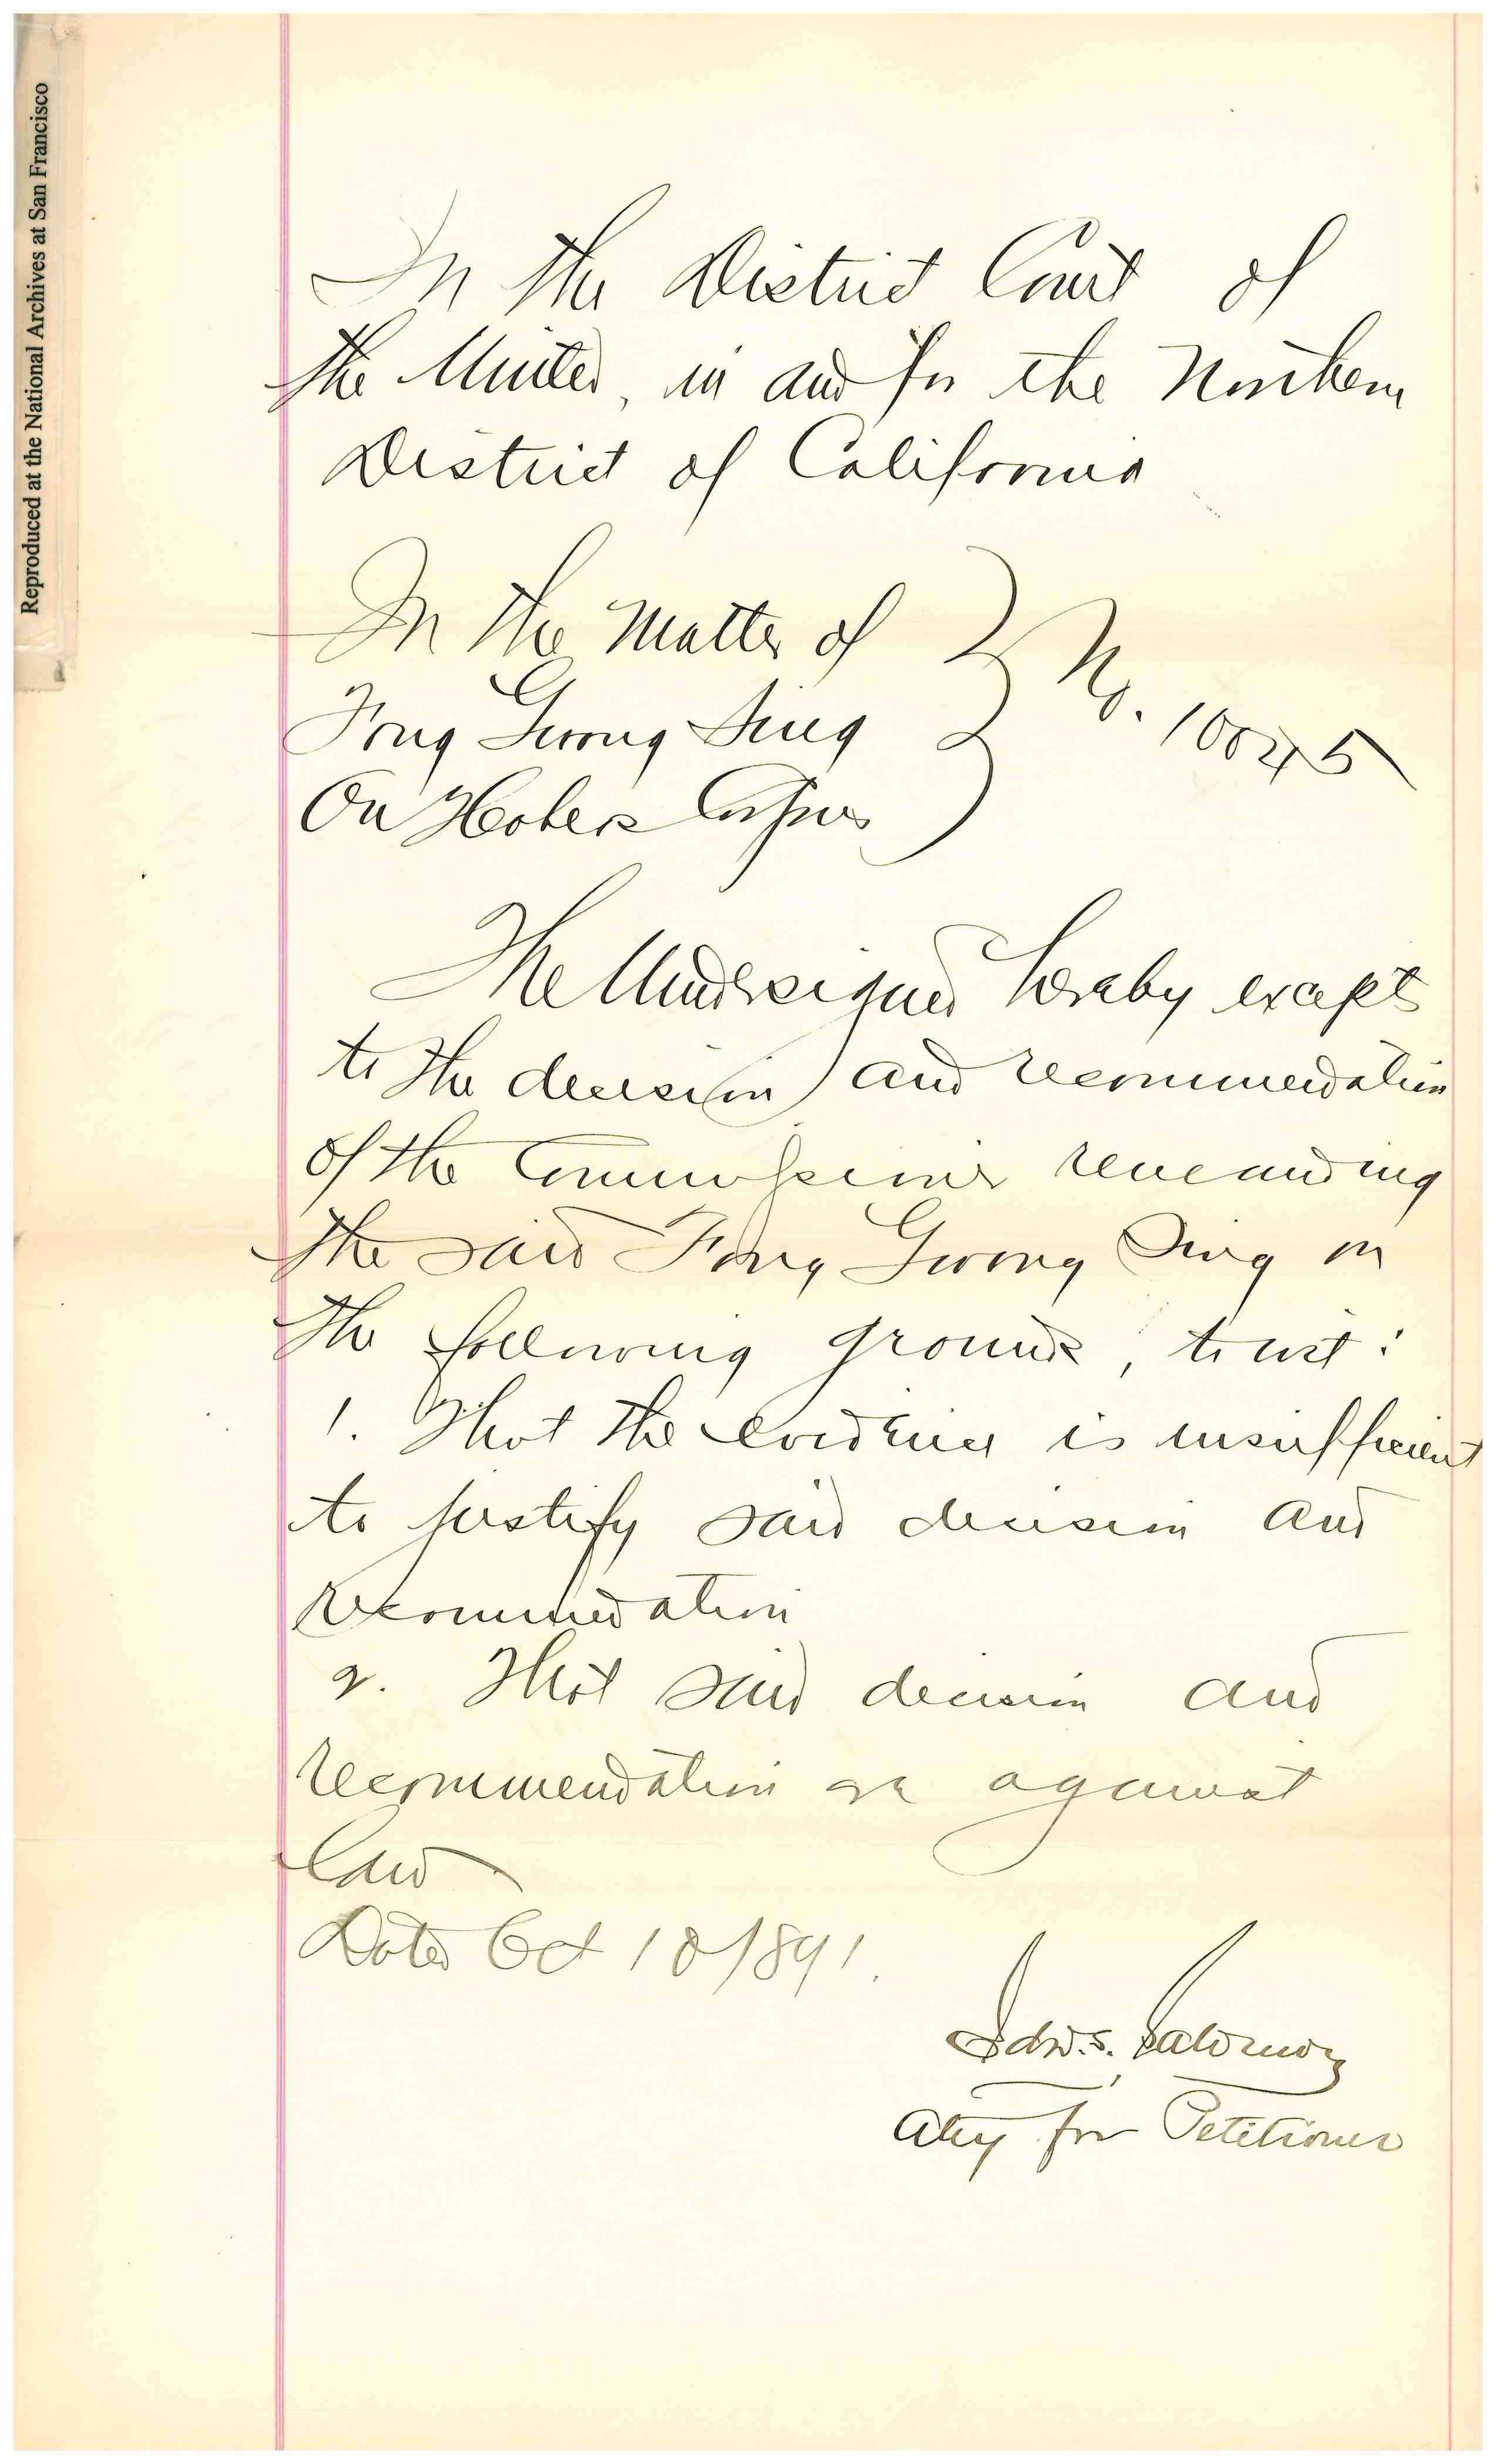 Reproduced at the National Archives at San Francisco
In the District Court of
the United, in and for the Northern
District of California
In the Matter of
Fong Gwong Sing
On Habeas Corpus
No. 10045
The Undersigned hereby except
to the decision and recommendation
of the Commissioner remanding
the said Fong Gwong Sing on
the following grounds, to wit:
1. That the evidence is insufficient
to justify said decision and
recommendation
2. That said decision and
recommendation are against
law
Dated Oct 10 1891.
Edw. S. Salomon
Atty for Petitioner